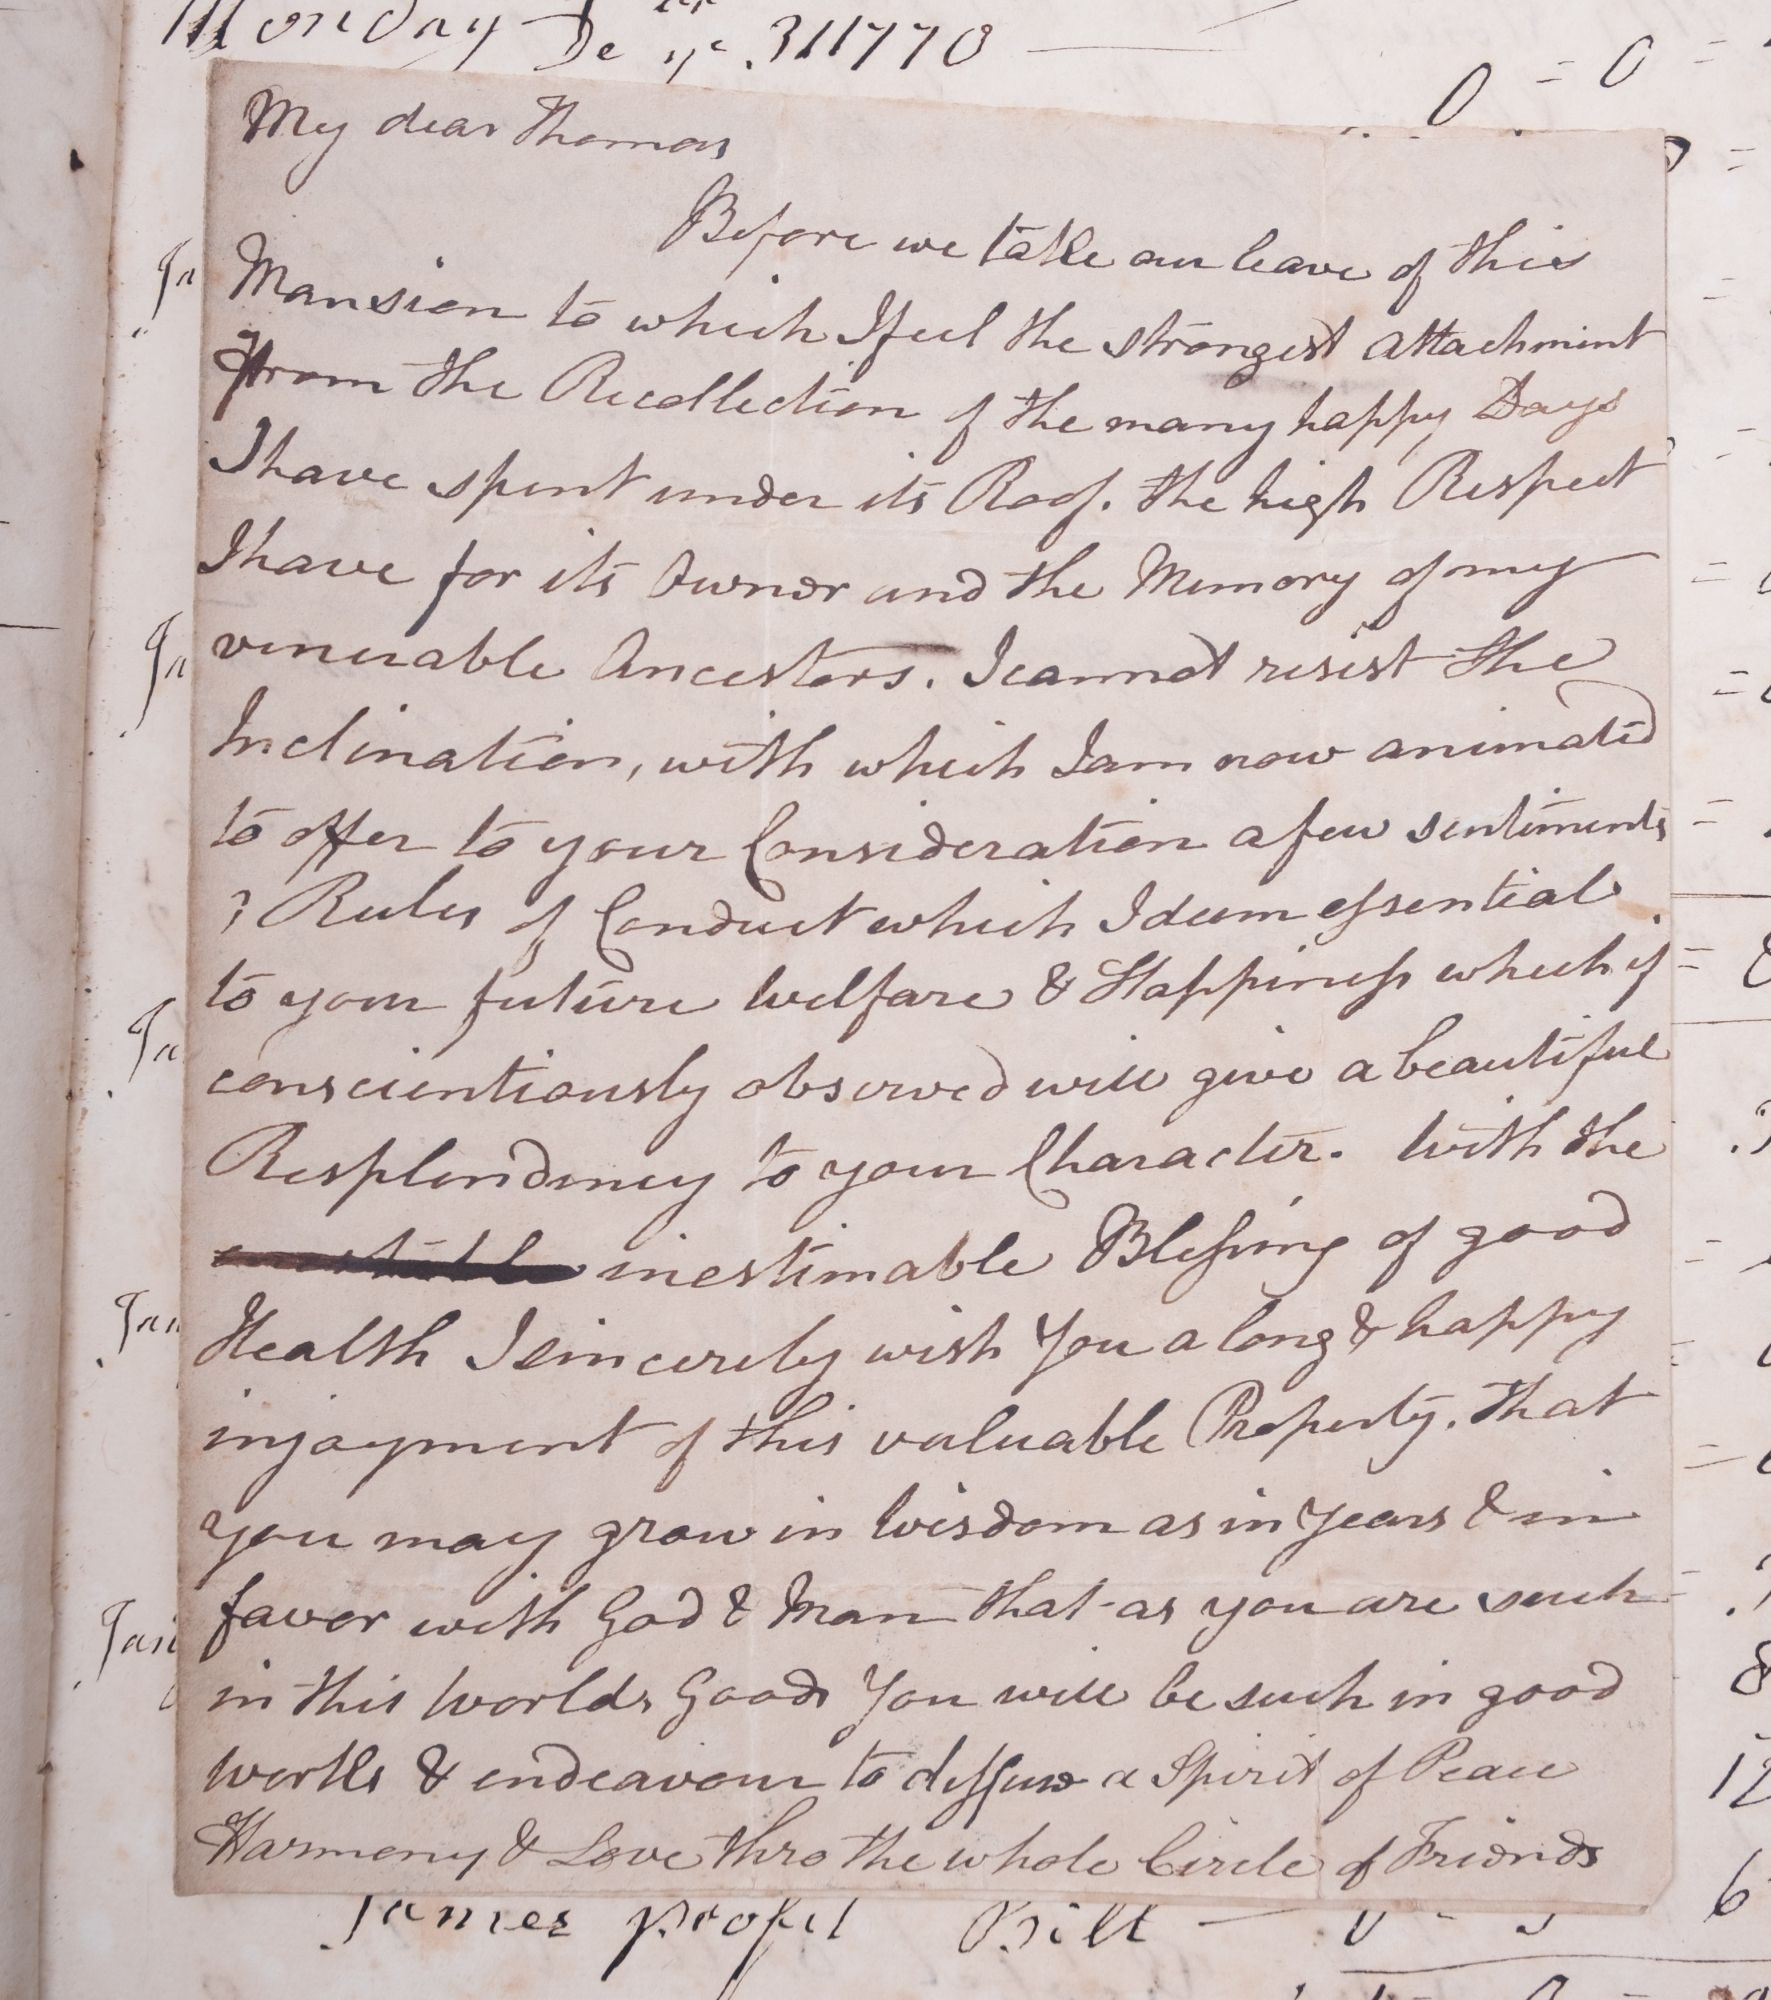 Monday De 31 1770
0 = 0 =
My dear Thomas
Before we take our leave of this
Mansion to which I feel the strongest attachment
from the Recollection of the many happy Days
I have spent under its Roof. the high Respect
I have for its Owner and the Memory of my
venerable Ancestors. I cannot resist the
Inclination, with which I am now animated
to offer to your Consideration a few sentiments
& Rules of Conduct which I deem essential
to your future Welfare & Happiness which if
conscientiously observed will give a beautiful
Resplendency to your Character. With the
inestimable Blessing of good
Health I sincerely wish You a long & happy
injoyment of this valuable Property. that
you may grow in Wisdom as in Years & in
favor with God & Man that as you are such
in this Worlds Goods You will be such in good
works & endeavour to diffuse a Spirit of Peace
Harmony & Love thro the whole Circle of Friends
Ja
Ja
Ja
Jan
Jan
8
12
6
James profit Bill